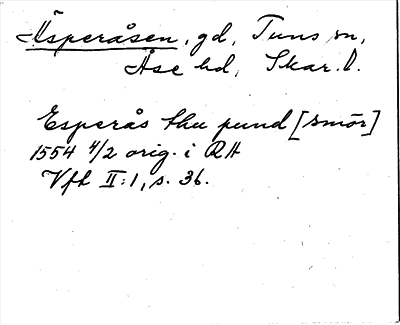 Äsperåsen, gd, Tuns sn,
Åse hd, Skar. l.
Esperås thu pund [smör]
1554 4/2 orig. i RA
Vfh II:1, s. 36.